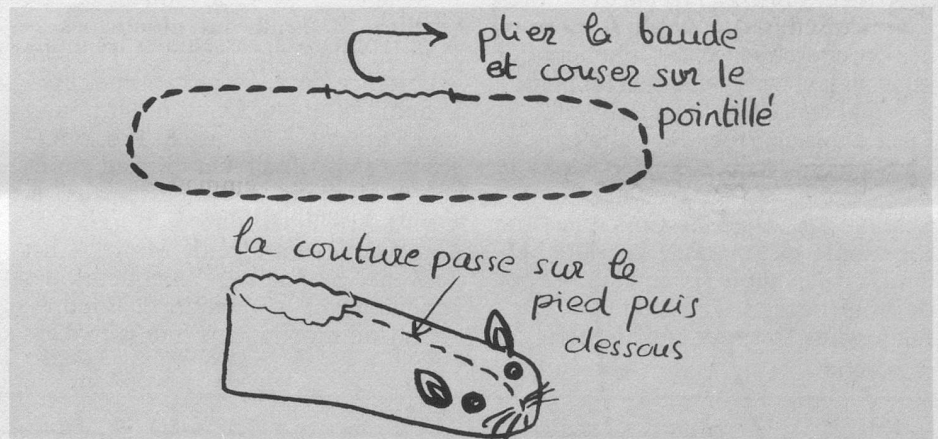 plier la baude
et couser sur le
pointillé
la couture passe sur le
pied puis
dessous